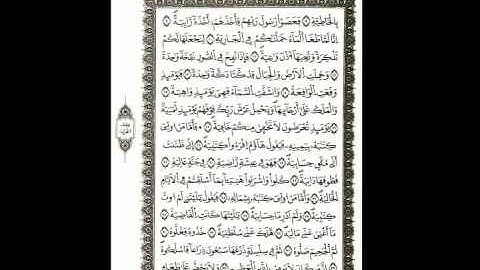 بِالْخَاطِئَةِ ۝ فَعَصَوْا رَسُولَ رَبِّهِمْ فَأَخَذَهُمْ أَخْذَةً رَّابِيَةً ۝
إِنَّا لَمَّا طَغَا الْمَآءُ حَمَلْنَٰكُمْ فِي الْجَارِيَةِ ۝ لِنَجْعَلَهَا لَكُمْ
تَذْكِرَةً وَتَعِيَهَآ أُذُنٌ وَٰعِيَةٌ ۝ فَإِذَا نُفِخَ فِي الصُّورِ نَفْخَةٌ وَٰحِدَةٌ ۝
وَحُمِلَتِ الْأَرْضُ وَالْجِبَالُ فَدُكَّتَا دَكَّةً وَٰحِدَةً ۝ فَيَوْمَئِذٍ
وَقَعَتِ الْوَاقِعَةُ ۝ وَانشَقَّتِ السَّمَآءُ فَهِيَ يَوْمَئِذٍ وَاهِيَةٌ ۝
وَالْمَلَكُ عَلَىٰٓ أَرْجَآئِهَا وَيَحْمِلُ عَرْشَ رَبِّكَ فَوْقَهُمْ يَوْمَئِذٍ ثَمَٰنِيَةٌ ۝
يَوْمَئِذٍ تُعْرَضُونَ لَا تَخْفَىٰ مِنكُمْ خَافِيَةٌ ۝ فَأَمَّا مَنْ أُوتِيَ
كِتَٰبَهُ بِيَمِينِهِ فَيَقُولُ هَآؤُمُ اقْرَءُوا كِتَٰبِيَهْ ۝ إِنِّي ظَنَنتُ
أَنِّي مُلَٰقٍ حِسَابِيَهْ ۝ فَهُوَ فِي عِيشَةٍ رَّاضِيَةٍ ۝ فِي جَنَّةٍ عَالِيَةٍ ۝
قُطُوفُهَا دَانِيَةٌ ۝ كُلُوا وَاشْرَبُوا هَنِيٓئًا بِمَآ أَسْلَفْتُمْ فِي الْأَيَّامِ
الْخَالِيَةِ ۝ وَأَمَّا مَنْ أُوتِيَ كِتَٰبَهُ بِشِمَالِهِ فَيَقُولُ يَٰلَيْتَنِي لَمْ أُوتَ
كِتَٰبِيَهْ ۝ وَلَمْ أَدْرِ مَا حِسَابِيَهْ ۝ يَٰلَيْتَهَا كَانَتِ الْقَاضِيَةَ ۝
مَآ أَغْنَىٰ عَنِّي مَالِيَهْ ۝ هَلَكَ عَنِّي سُلْطَٰنِيَهْ ۝ خُذُوهُ فَغُلُّوهُ ۝
ثُمَّ الْجَحِيمَ صَلُّوهُ ۝ ثُمَّ فِي سِلْسِلَةٍ ذَرْعُهَا سَبْعُونَ ذِرَاعًا فَاسْلُكُوهُ ۝
إِنَّهُ كَانَ لَا يُؤْمِنُ بِاللَّهِ الْعَظِيمِ ۝ وَلَا يَحُضُّ عَلَىٰ طَعَامِ